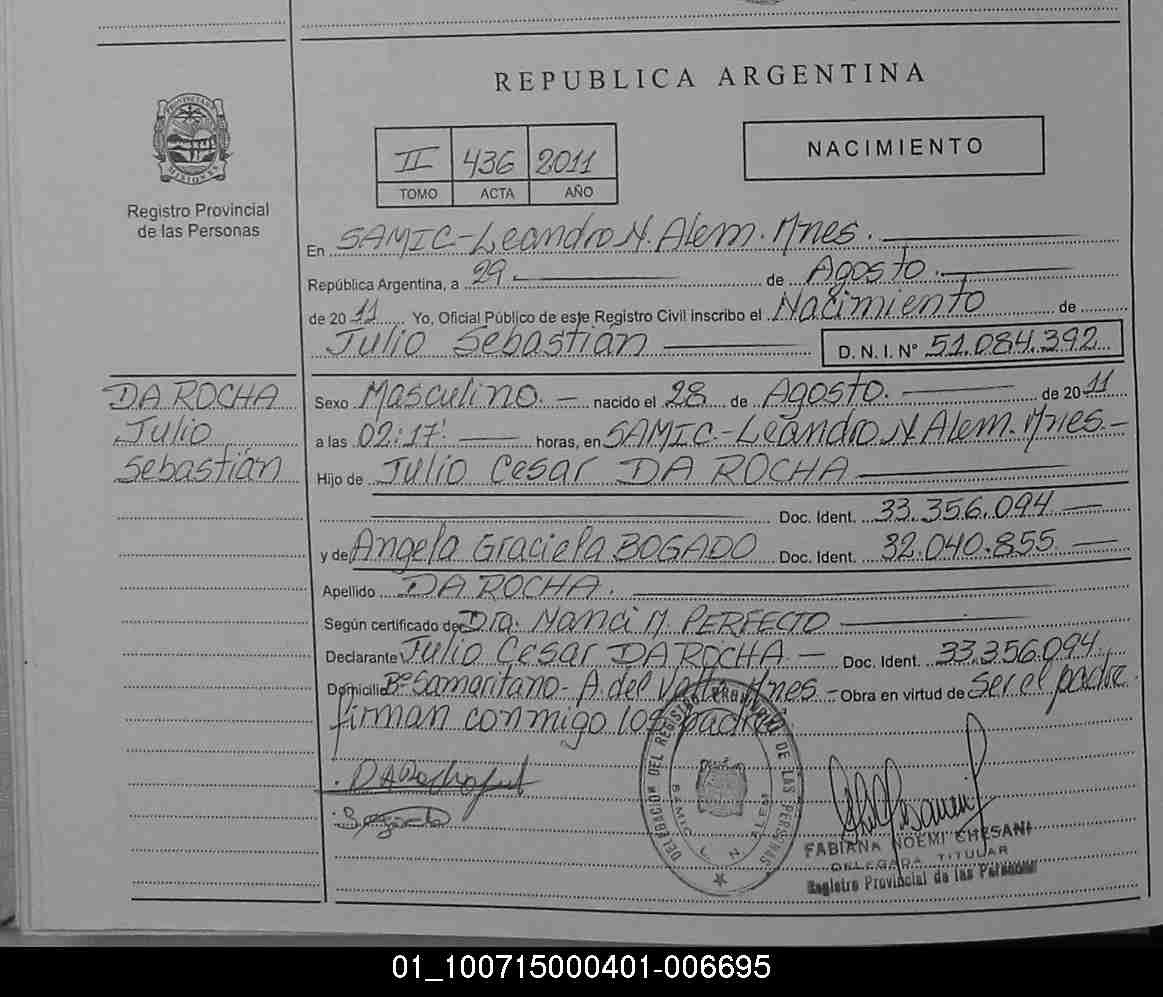 REPUBLICA ARGENTINA
II 436 2011
TOMO ACTA AÑO
NACIMIENTO
Registro Provincial
de las Personas
En SAMIC-Leandro N. Alem. Mnes.
República Argentina, a 29 de Agosto.
de 2011 Yo, Oficial Público de este Registro Civil inscribo el Nacimiento de
Julio Sebastián D.N.I. Nº 51.084.392
DA ROCHA
Julio
Sebastián
Sexo Masculino. nacido el 28 de Agosto. de 2011
a las 02:17' horas, en SAMIC.-Leandro N Alem. Mnes.-
Hijo de Julio Cesar DA ROCHA
Doc. Ident. 33.356.094
y de Angela Graciela BOGADO Doc. Ident. 32.040.855
Apellido DA ROCHA.
Según certificado de Dra. Nanci M. PERFECTO
Declarante Julio Cesar DA ROCHA - Doc. Ident. 33.356.094
Domicilio Bº Samaritano- A. del Valle Mnes.- Obra en virtud de ser el padre.
firman conmigo los padres
DELEGACION DEL REGISTRO PROVINCIAL DE LAS PERSONAS
SAMIC L N ALEM
FABIANA NOEMI CHESANI
DELEGADA TITULAR
Registro Provincial de las Personas
01_100715000401-006695